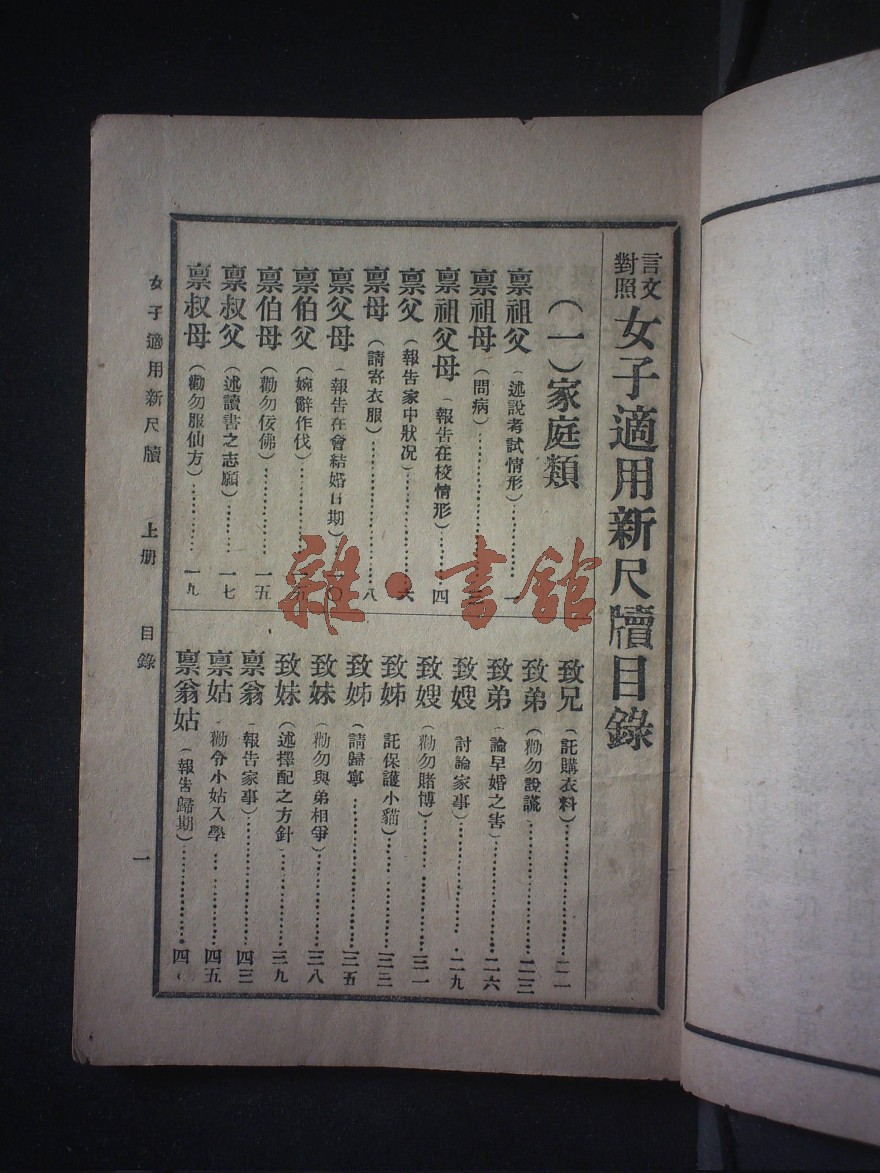 言文對照 女子適用新尺牘目錄
（一）家庭類
禀祖父（述說考試情形）………一
禀祖母（問病）………
禀祖父母（報告在校情形）四
禀父（報告家中狀況）………六
禀母（請寄衣服）………八
禀父母（報告在會結婚日期）一〇
禀伯父（婉辭作伐）………
禀伯母（勸勿佞佛）………一五
禀叔父（述讀書之志願）………一七
禀叔母（勸勿服仙方）………一九
致兄（託購衣料）………二一
致弟（勸勿說謊）………二三
致弟（論早婚之害）………二六
致嫂（討論家事）………二九
致嫂（勸勿賭博）………三一
致姊（託保護小貓）………三三
致姊（請歸寧）………三五
致妹（勸勿與弟相爭）………三八
致妹（述擇配之方針）………三九
禀翁（報告家事）………四三
禀姑（勸令小姑入學）………四五
禀翁姑（報告歸期）………四
女子適用新尺牘 上册 目錄 一
雜·書館